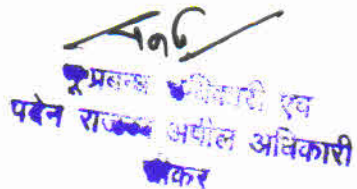 भूप्रबन्ध अधिकारी एवं
पदेन राजस्व अपील अधिकारी
सीकर